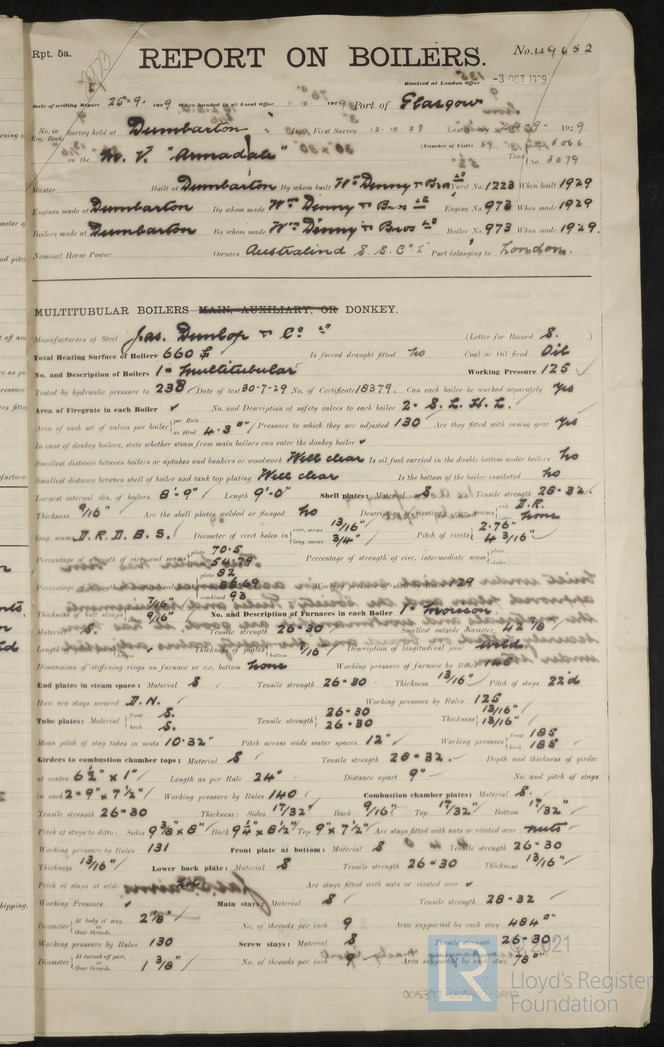 Rpt. 5a.
REPORT ON BOILERS.
No. 49652
Received at London Office
-3 OCT 1929
Date of writing Report 25-9- 1929 When handed in at Local Office 1929 Port of Glasgow
No. in Reg. Book. Survey held at Dumbarton First Survey 12.10.28 Last 1929
(Number of Visits 59
on the M. V. "Armadale" Tons 5066
Net 3079
Master Built at Dumbarton By whom built Wm Denny & Bros Ld Yard No. 1223 When built 1929
Engines made at Dumbarton By whom made Wm Denny & Bros Ld Engine No. 973 When made 1929
Boilers made at Dumbarton By whom made Wm Denny & Bros Ld Boiler No. 973 When made 1929.
Nominal Horse Power Owners Australind S. S. Co Port belonging to London.
MULTITUBULAR BOILERS MAIN, AUXILIARY, OR DONKEY.
Manufacturers of Steel Jas. Dunlop & Co Ld (Letter for Record S.)
Total Heating Surface of Boilers 660 Is forced draught fitted no Coal or Oil fired Oil
No. and Description of Boilers 1- Multitubular Working Pressure 125
Tested by hydraulic pressure to 238 Date of test 30-7-29 No. of Certificate 18379. Can each boiler be worked separately yes
Area of Firegrate in each Boiler ✓ No. and Description of safety valves to each boiler 2- S. L. H. L.
Area of each set of valves per boiler per Rule as fitted 4.3" Pressure to which they are adjusted 130 Are they fitted with easing gear yes
In case of donkey boilers, state whether steam from main boilers can enter the donkey boiler ✓
Smallest distance between boilers or uptakes and bunkers or woodwork Well clear Is oil fuel carried in the double bottom under boilers no
Smallest distance between shell of boiler and tank top plating Well clear Is the bottom of the boiler insulated no
Largest internal dia. of boilers 8'-9" Length 9'-0" Shell plates: Material S Tensile strength 28-32.
Thickness 9/16" Are the shell plates welded or flanged no Description of riveting: D.R.
none
long. seams D. R. D. B. S. Diameter of rivet holes in circ. seams 13/16" long. seams 3/4" Pitch of rivets 2.76"
4 3/16"
Percentage of strength of circ. end seams plate 70.5 54.79 Percentage of strength of circ. intermediate seam
plate 82
Percentage of strength 86.69 Working pressure 129
combined 93
Thickness of butt straps 7/16" 9/16" No. and Description of Furnaces in each Boiler 1- Morison
Material S. Tensile strength 26-30 Smallest outside diameter 42
Length of Thickness of plates bottom 7/16" Description of longitudinal joint weld
Dimensions of stiffening rings on furnace or c.c. bottom none Working pressure of furnace by Rules 145
End plates in steam space: Material S Tensile strength 26-30 Thickness 13/16" Pitch of stays 22"
How are stays secured D. N. Working pressure by Rules 125
Tube plates: Material front S. back S. Tensile strength 26-30 26-30 Thickness 13/16" 13/16"
Mean pitch of stay tubes in nests 10.32" Pitch across wide water spaces 12" Working pressure front 185 back 185
Girders to combustion chamber tops: Material S Tensile strength 28-32. Depth and thickness of girder
at centre 6 1/2" x 1" Length as per Rule 24" Distance apart 9" No. and pitch of stays
in each 2-9" x 7 1/2" Working pressure by Rules 140 Combustion chamber plates: Material S.
Tensile strength 26-30 Thickness: Sides 17/32" Back 9/16" Top 17/32" Bottom 17/32"
Pitch of stays to ditto: Sides 9 3/8" x 8" Back 9 1/4" x 8 1/2" Top 9" x 7 1/2" Are stays fitted with nuts or riveted over nuts
Working pressure by Rules 131 Front plate at bottom: Material S Tensile strength 26-30
Thickness 13/16" Lower back plate: Material S Tensile strength 26-30 Thickness 13/16"
Pitch of stays at wide Are stays fitted with nuts or riveted over ✓
Working Pressure ✓ Main stays: Material S Tensile strength 28-32
Diameter At body of stay, or Over threads. 2 7/8" No. of threads per inch 9 Area supported by each stay 484"
Working pressure by Rules 130 Screw stays: Material S Tensile strength 26-30
Diameter At turned off part, or Over threads. 1 3/8" No. of threads per inch 9 Area supported by each stay 78"
© 2021
Lloyd's Register
Foundation